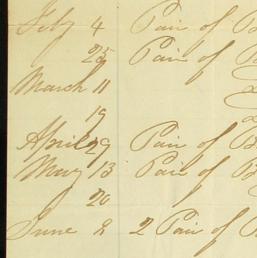 Feby 4 Pair of B
25 Pair of B
March 11
19
April 29 Pair of B
May 13 Pair of B
20
June 8 2 Pair of